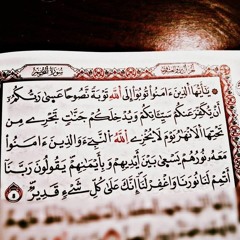 سُورَةُ التَّحْرِيمِ
يَٰٓأَيُّهَا ٱلَّذِينَ ءَامَنُوا۟ تُوبُوٓا۟ إِلَى ٱللَّهِ تَوْبَةً نَّصُوحًا عَسَىٰ رَبُّكُمْ
أَن يُكَفِّرَ عَنكُمْ سَيِّـَٔاتِكُمْ وَيُدْخِلَكُمْ جَنَّٰتٍ تَجْرِى مِن
تَحْتِهَا ٱلْأَنْهَٰرُ يَوْمَ لَا يُخْزِى ٱللَّهُ ٱلنَّبِىَّ وَٱلَّذِينَ ءَامَنُوا۟
مَعَهُۥ نُورُهُمْ يَسْعَىٰ بَيْنَ أَيْدِيهِمْ وَبِأَيْمَٰنِهِمْ يَقُولُونَ رَبَّنَآ
أَتْمِمْ لَنَا نُورَنَا وَٱغْفِرْ لَنَآ إِنَّكَ عَلَىٰ كُلِّ شَىْءٍ قَدِيرٌ ٨